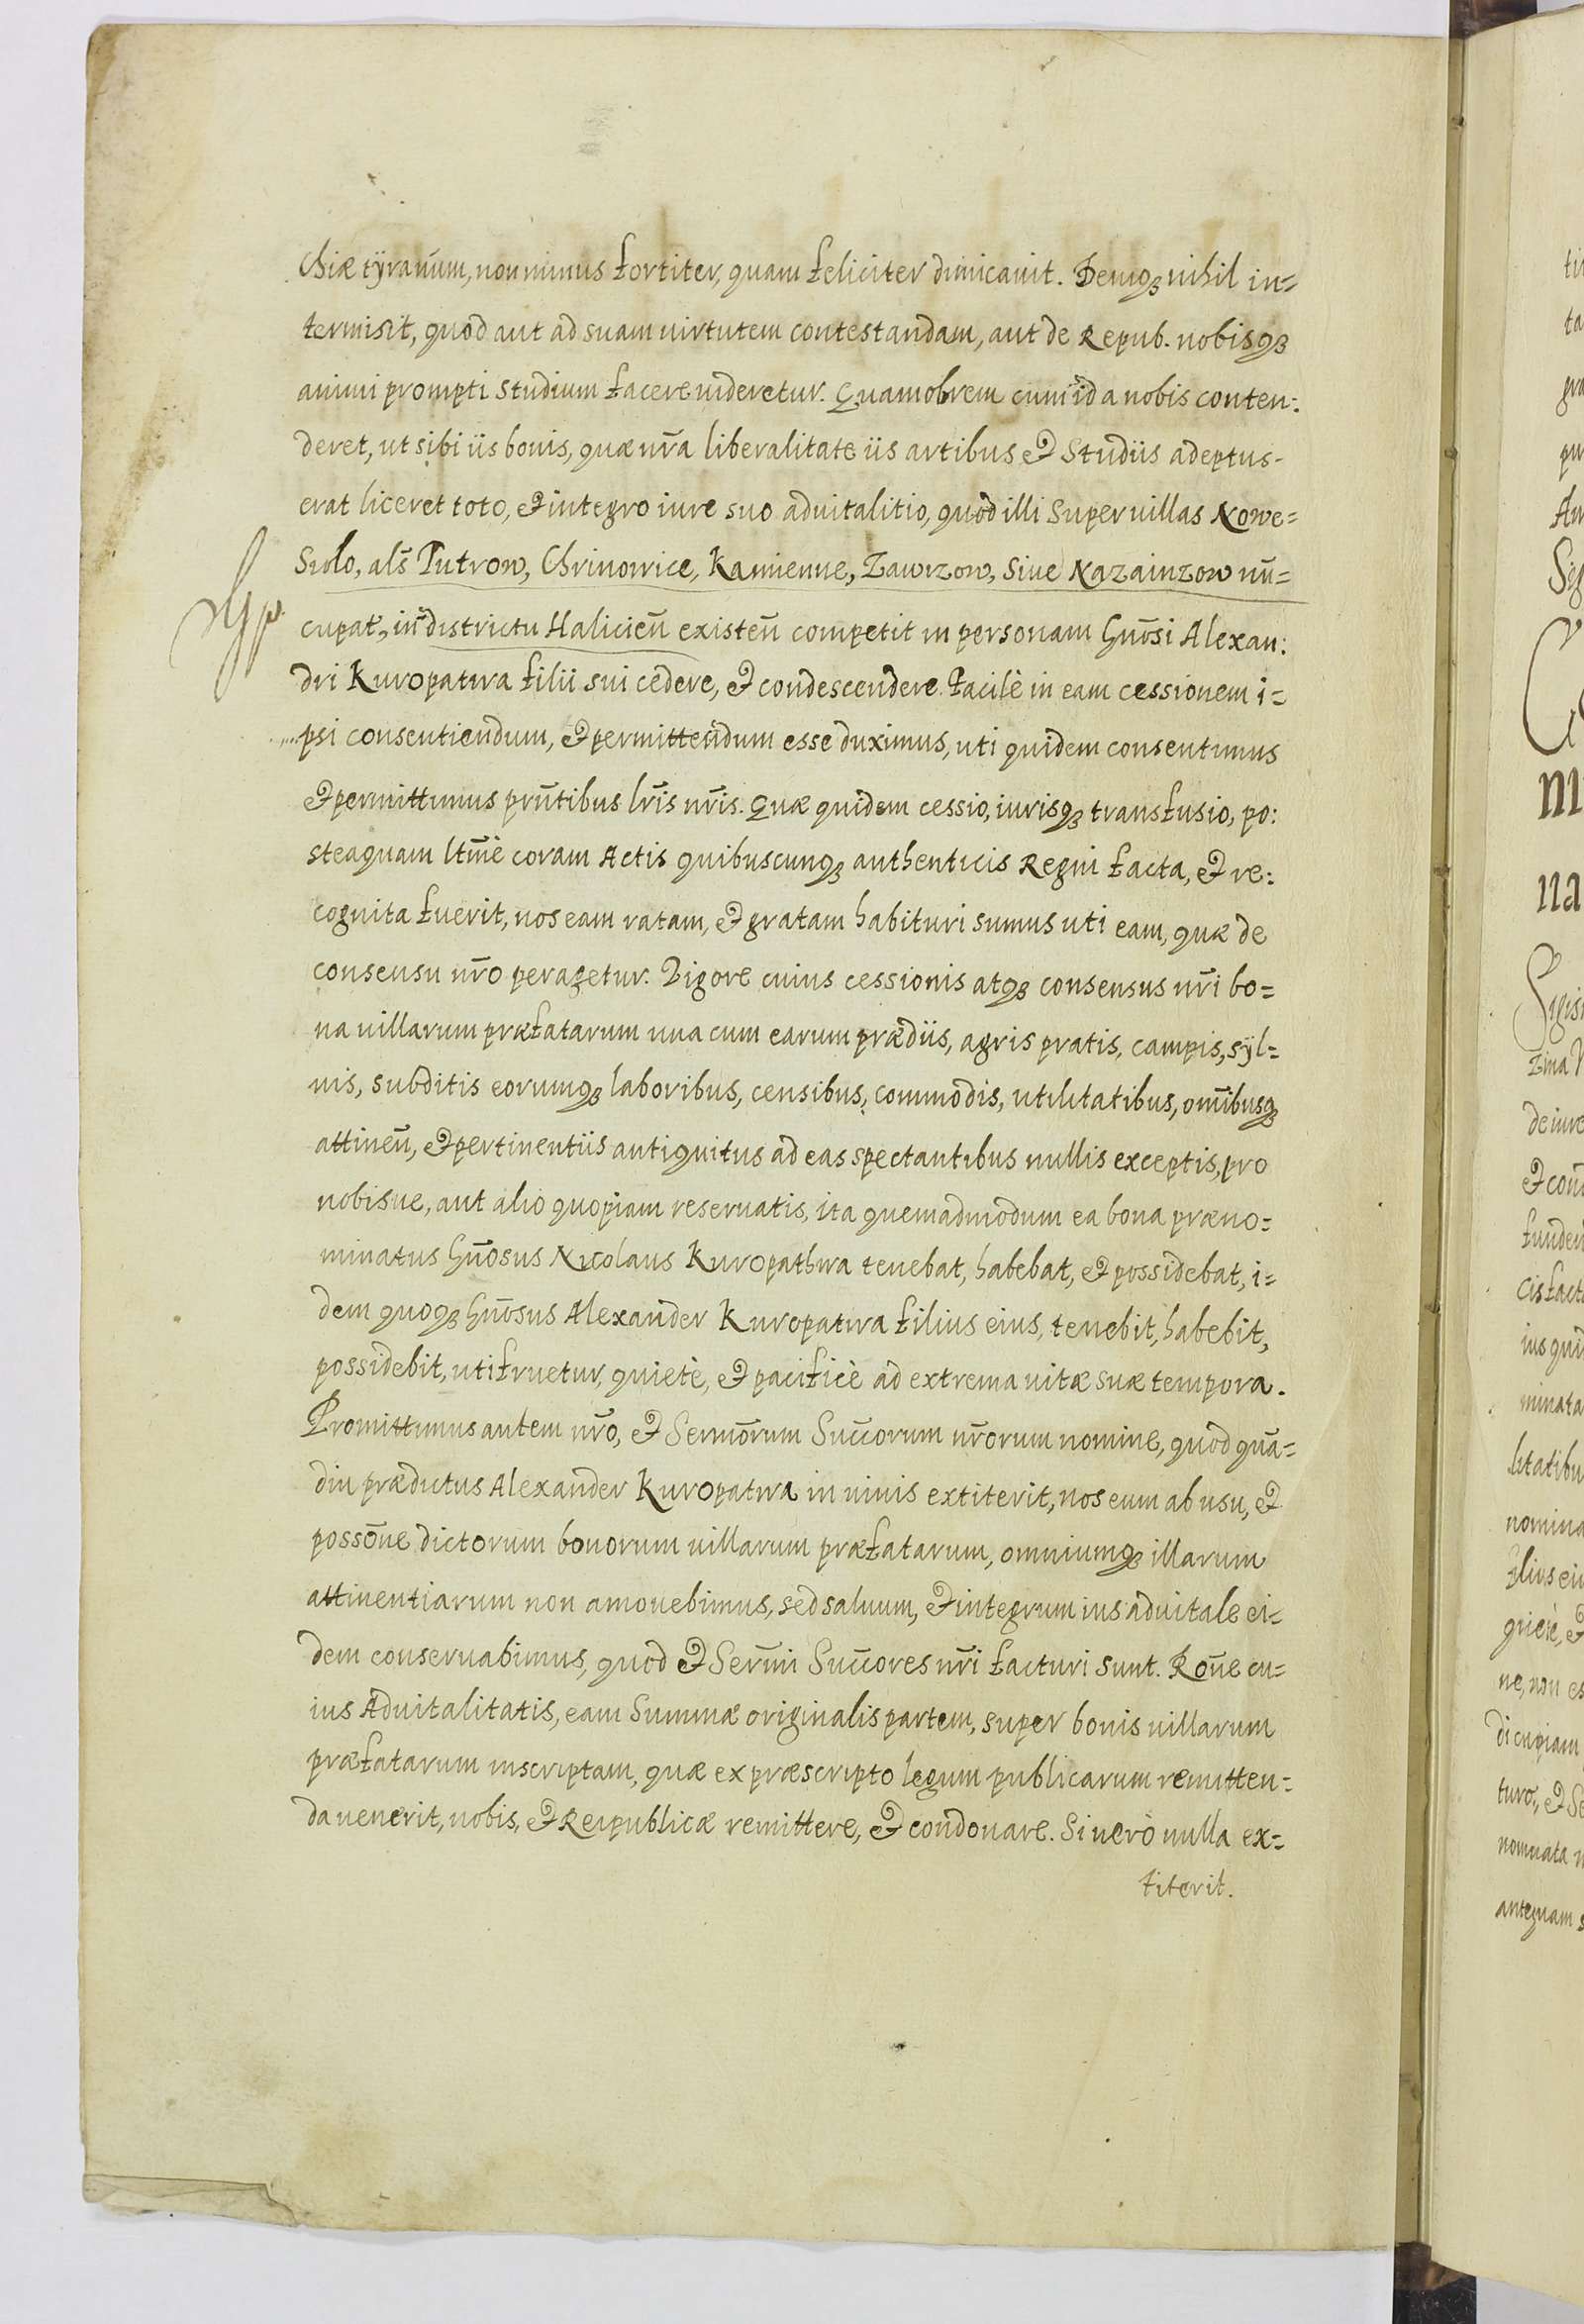 chiæ tÿranūm, non minus fortiter, quam feliciter dimicauit. Deniqȝ nihil in=
termisit, quod aut ad suam uirtutem contestandam, aut de Repub. nobisqȝ
animi prompti studium facere uideretur. Quamobrem cum id a nobis conten:
deret, ut sibi iis bonis, quæ nr̄a liberalitate iis artibus et Studiis adeptus
erat liceret toto, et integro iure suo aduitalitio, quod illi Super uillas Nowe=
Siolo, als̄ Putrow, Chrinowice, Kamienne, Zawizow, Siue Nazainzow nū=
cupat., in districtu Halicien̄ existen̄ competit in personam Gn̄osi Alexan:
dri Kuropatwa filii sui cedere, et condescendere. Facilè in eam cessionem i=
psi consentiendum, et permittendum esse duximus, uti quidem consentimus
et permittimus prn̄tibus lr̄is nr̄is. Quæ quidem cessio, iurisqȝ transfusio, po:
steaquam ltm̄è coram Actis quibuscunqȝ authenticis Regni facta, et re:
cognita fuerit, nos eam ratam, et gratam habituri sumus uti eam, quæ de
consensu nr̄o peragetur. Vigore cuius cessionis atqȝ consensus nr̄i bo=
na uillarum præfatarum una cum earum prædiis, agris pratis, campis, sÿl=
uis, subditis eorumqȝ laboribus, censibus, commodis, utilitatibus, om̄ibusqȝ
attinen̄, et pertinentiis antiquitus ad eas spectantibus nullis exceptis, pro
nobisue, aut alio quopiam reseruatis, ita quemadmodum ea bona præno=
minatus Gn̄osus Nicolaus Kuropathwa tenebat, habebat, et possidebat, i=
dem quoqȝ Gn̄osus Alexander Kuropatwa filius eius, tenebit, habebit,
possidebit, utifruetur, quietè, et pacificè ad extrema uitæ suæ tempora.
Promittimus autem nr̄o, et Sermōrum Succ̄orum nr̄orum nomine, quod quā=
diu prædictus Alexander Kuropatwa in uiuis extiterit, nos eum ab usu, et
possōne dictorum bonorum uillarum præfatarum, omniumqȝ illarum
attinentiarum non amouebimus, sed saluum, et integrum ius aduitale ei=
dem conseruabimus, quod et Serm̄i Succ̄ores nr̄i facturi sunt. Rōne cu=
ius Aduitalitatis, eam Summæ originalis partem, super bonis uillarum
præfatarum inscriptam, quæ ex præscripto legum publicarum remitten=
da uenerit, nobis, et Reipublicæ remittere, et condonare. Si uerò nulla ex=
titerit.